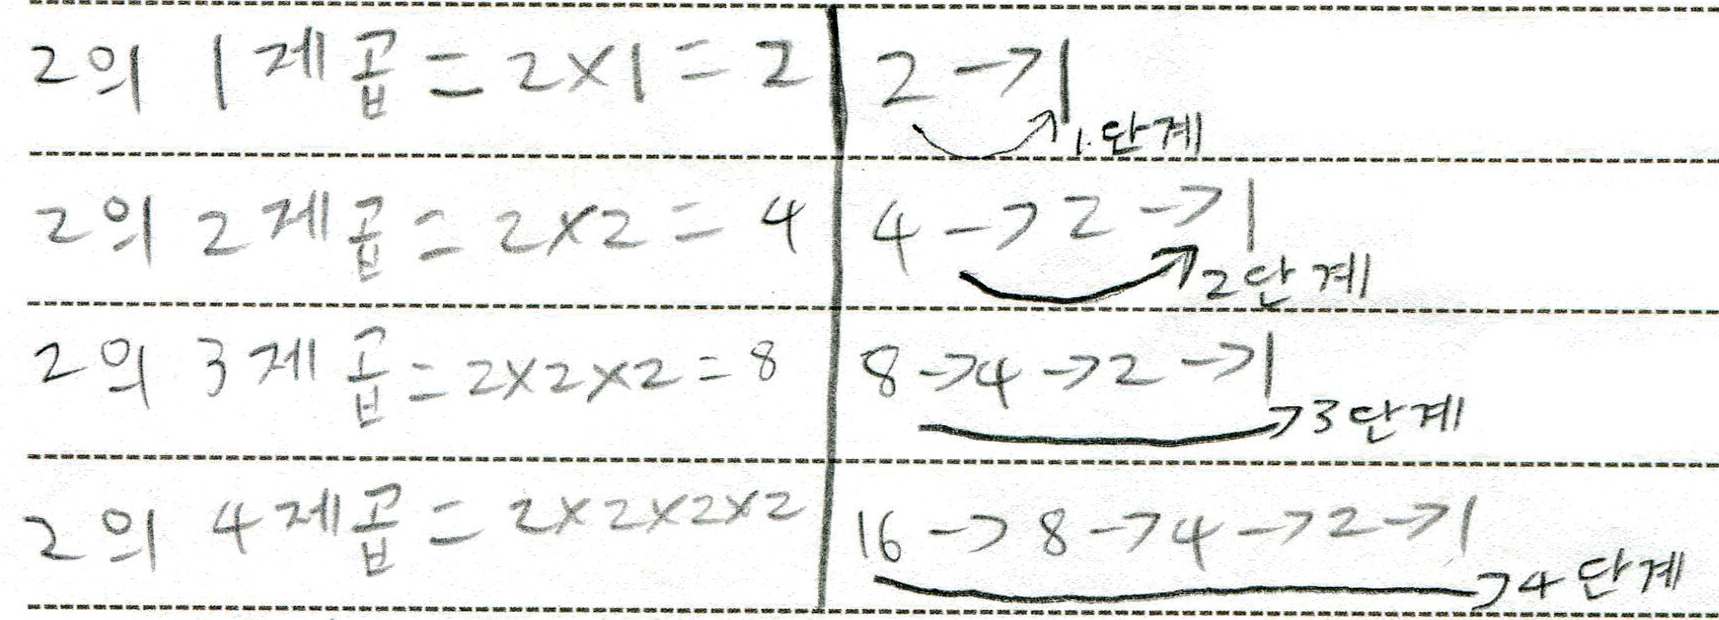 2의 1제곱=2×1=2
2→1
1단계
2의 2제곱=2×2=4
4→2→1
2단계
2의 3제곱=2×2×2=8
8→4→2→1
3단계
2의 4제곱=2×2×2×2
16→8→4→2→1
4단계